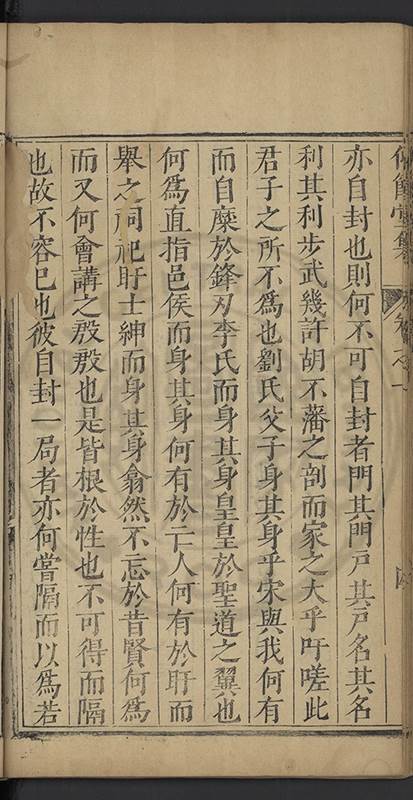 亦自封也則何不可自封者門其門戸其戸名其名
利其利步武幾許胡不藩之剖而家之大乎吁嗟此
君子之所不爲也劉氏父子身其身乎宋與我何有
而自糜於鋒刃李氏而身其身皇皇於聖道之翼也
何爲直指邑侯而身其身何有於亡人何有於盱而
舉之祠祀盱士紳而身其身翕然不忘於昔賢何爲
而又何會講之殷殷也是皆根於性也不可得而隔
也故不容巳也彼自封一局者亦何嘗隔而以爲若